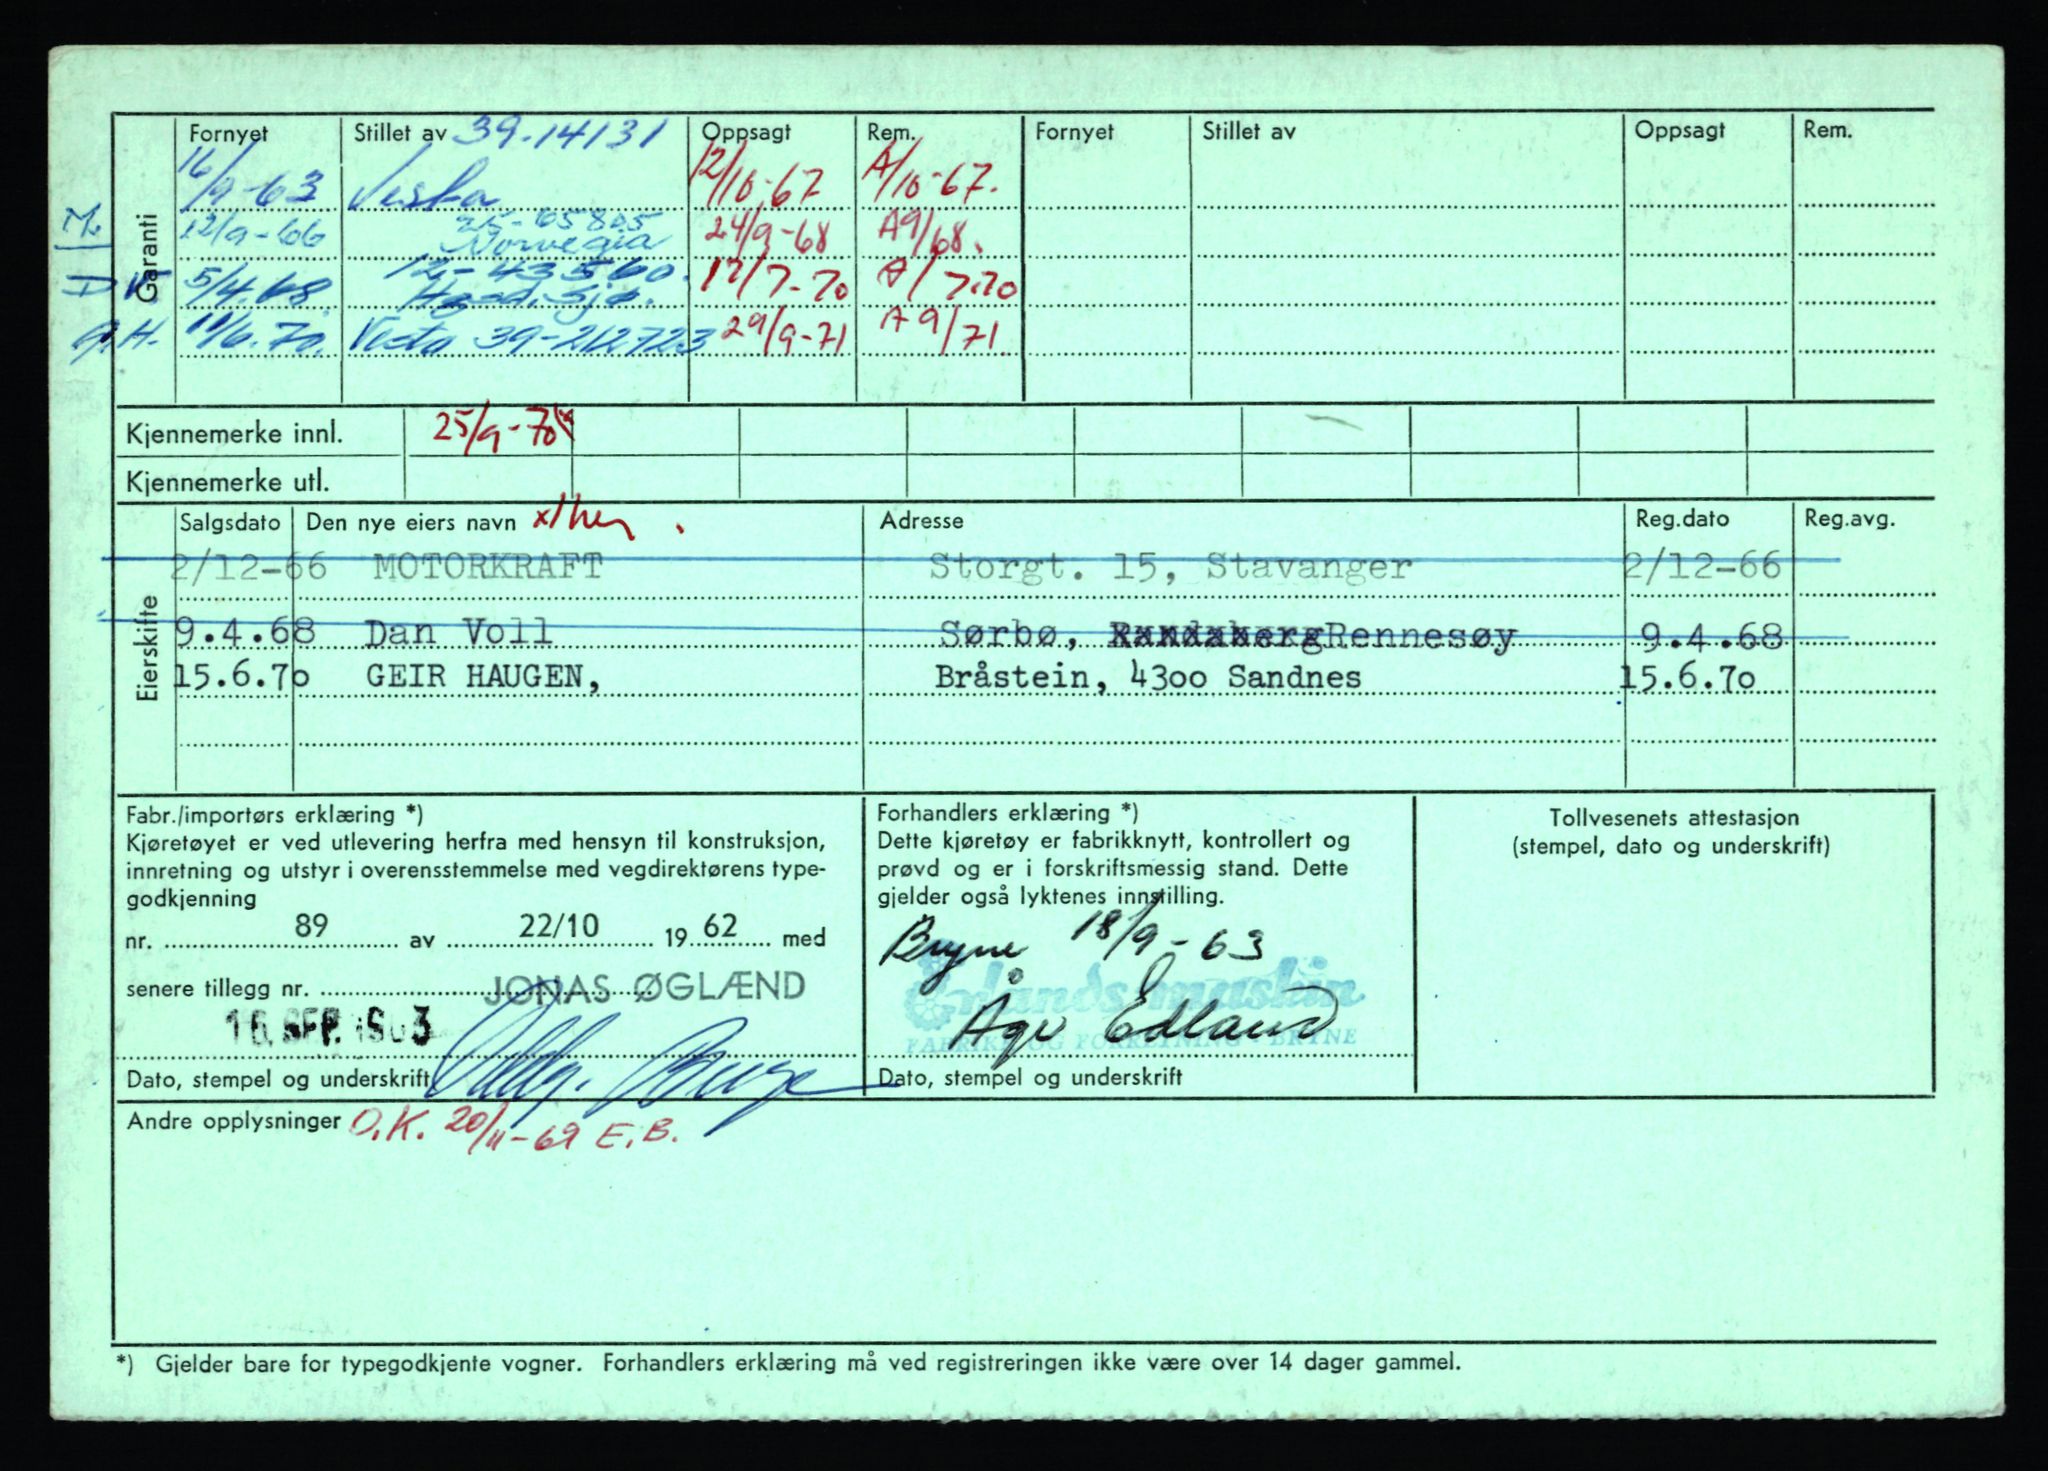 Garanti
Fornyet Stillet av 39.14131 Oppsagt Rem. Fornyet Stillet av Oppsagt Rem.
16/9-63 Vesta 12/10-67 A/10-67.
M. 12/9-66 25-65805 Norvegia 24/9-68 A9/68.
DV 5/4.68 12-43560. 17/7-70 A/7.70
G.H. 11/6.70. Vesta 39-212723 29/9-71 A9/71
Kjennemerke innl. 25/9-70
Kjennemerke utl.
Eierskifte
Salgsdato Den nye eiers navn Adresse Reg.dato Reg.avg.
2/12-66 MOTORKRAFT Storgt. 15, Stavanger 2/12-66
9.4.68 Dan Voll Sørbø, Randaberg Rennesøy 9.4.68
15.6.70 GEIR HAUGEN, Bråstein, 4300 Sandnes 15.6.70
Fabr./importørs erklæring *)
Kjøretøyet er ved utlevering herfra med hensyn til konstruksjon,
innretning og utstyr i overensstemmelse med vegdirektørens type-
godkjenning
nr. 89 av 22/10 19 62 med
senere tillegg nr. JONAS ØGLÆND
16 SEP. 1963
Dato, stempel og underskrift
Forhandlers erklæring *)
Dette kjøretøy er fabrikknytt, kontrollert og
prøvd og er i forskriftsmessig stand. Dette
gjelder også lyktenes innstilling.
Bryne 18/9-63
Åge Edland
FABRIKK OG FORRETNING - BRYNE
Dato, stempel og underskrift
Tollvesenets attestasjon
(stempel, dato og underskrift)
Andre opplysninger O.K. 20/11-69 E.B.
*) Gjelder bare for typegodkjente vogner. Forhandlers erklæring må ved registreringen ikke være over 14 dager gammel.